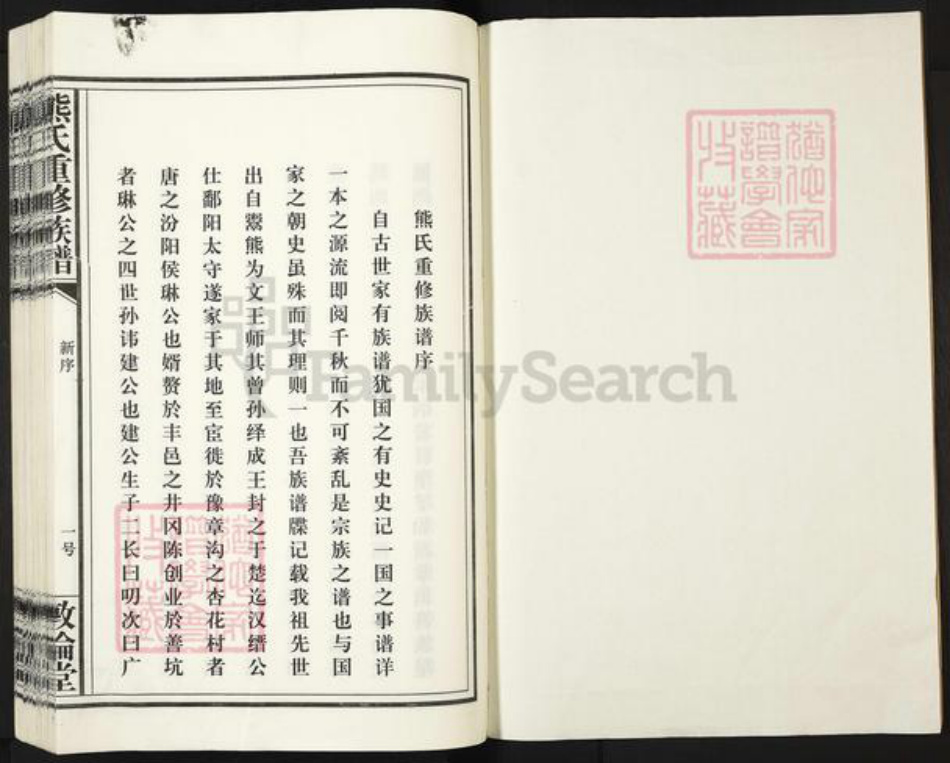 熊氏重修族谱序
自古世家有族谱犹国之有史史记一国之事谱详
一本之源流即阅千秋而不可紊乱是宗族之谱也与国
家之朝史虽殊而其理则一也吾族谱牒记载我祖先世
出自鬻熊为文王师其曾孙绎成王封之于楚迄汉缙公
仕鄱阳太守遂家于其地至宦徙於豫章沟之杏花村者
唐之汾阳侯琳公也婿赘於丰邑之井冈陈创业於善坑
者琳公之四世孙讳建公也建公生子二长曰叨次曰广
熊氏重修族谱
新序
一号
敦伦堂
猶他家
譜學會
收藏
FamilySearch